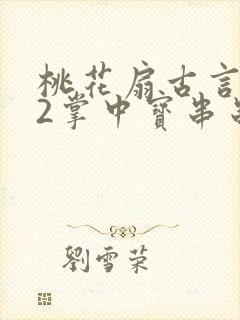 桃花扇古言
2掌中寶串
劉雪荣